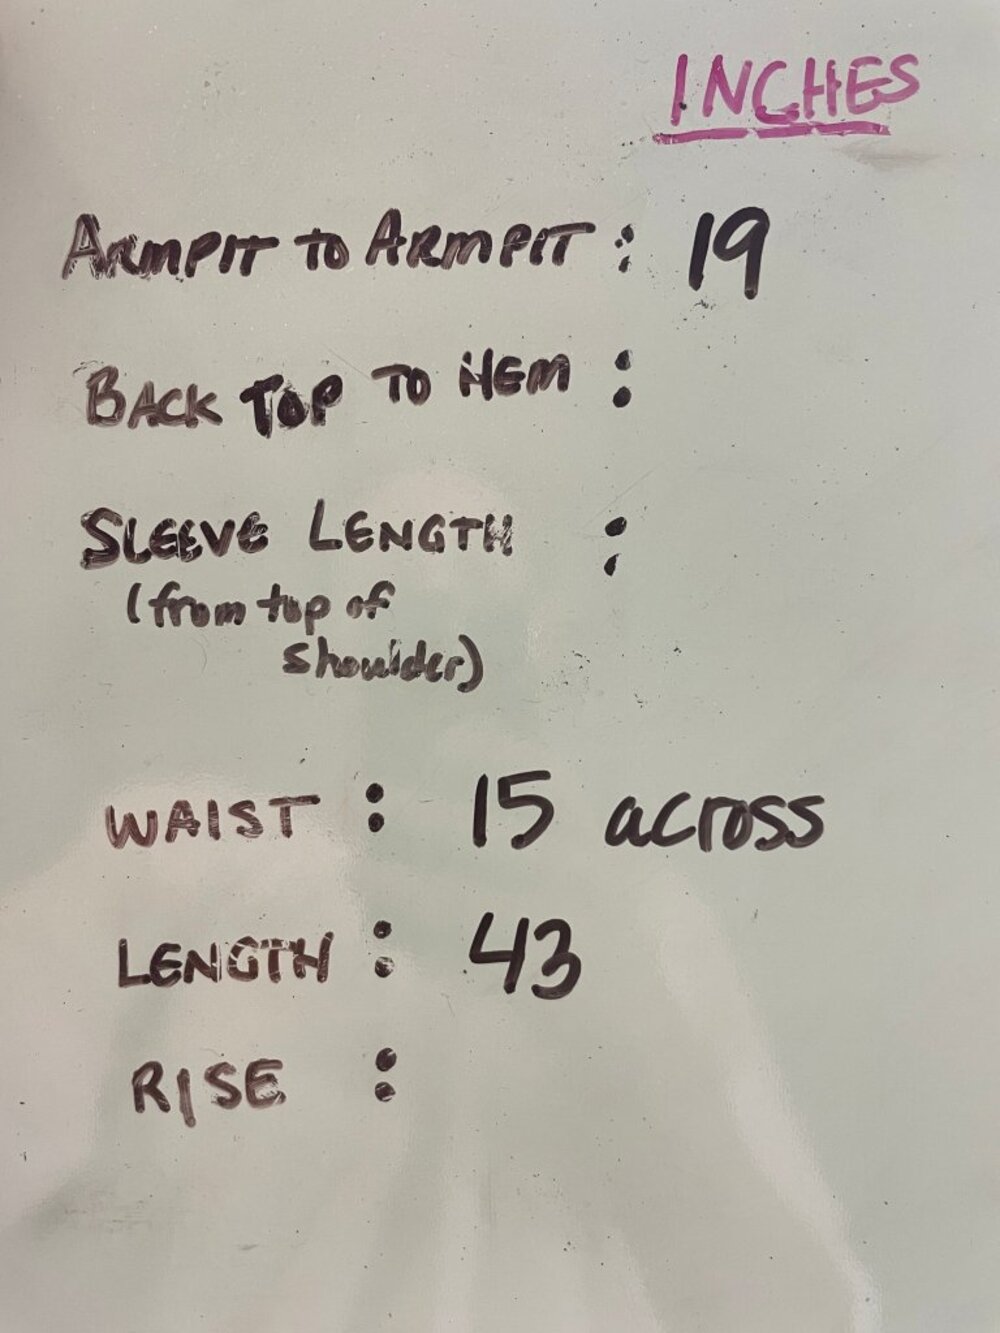 INCHES
ARMPIT TO ARMPIT : 19
BACK TOP TO HEM :
SLEEVE LENGTH :
(from top of
shoulder)
WAIST : 15 across
LENGTH : 43
RISE :